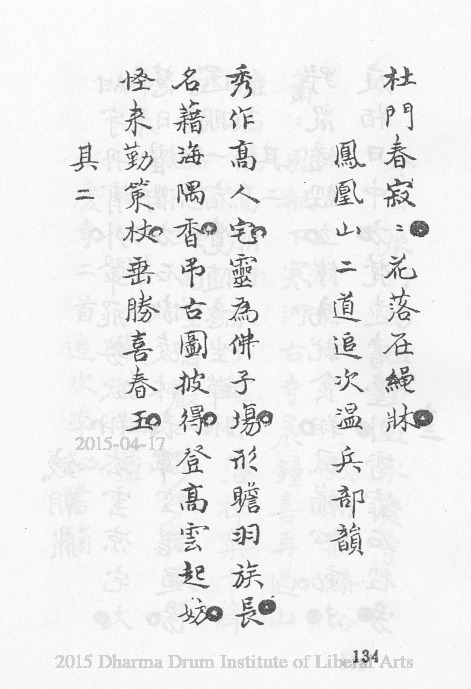 杜門春寂〻。花落在繩牀。
鳳凰山二道追次温兵部韻
秀作高人宅。靈為佛子場。形瞻羽族長。
名藉海隅香。弔古圖披得。登高雲起妨。
怪来勤策杖。垂勝喜春王。
其二
2015-04-17
134
2015 Dharma Drum Institute of Liberal Arts